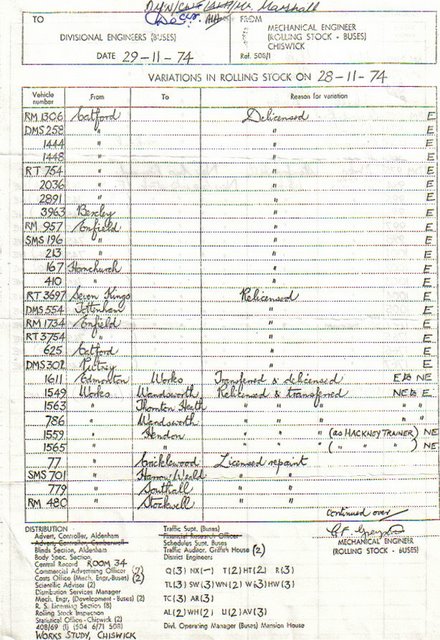 TO
Decr.
DIVISIONAL ENGINEERS (BUSES)
DATE 29-11-74
FROM
MECHANICAL ENGINEER
(ROLLING STOCK - BUSES)
CHISWICK
Ref. 508/1
VARIATIONS IN ROLLING STOCK ON 28-11-74
Vehicle number From To Reason for variation
RM 1306 Catford Delicensed E
DMS 258 " " E
1444 " " E
1448 " " E
RT 764 " " E
2036 " " E
2891 " " E
3963 Bexley " E
RM 957 Enfield " E
SMS 196 " " E
213 " " E
167 Hornchurch " E
410 " " E
RT 3697 Seven Kings Relicensed E
DMS 554 Tottenham " E
RM 1734 Enfield " E
RT 3754 " " E
625 Catford " E
DMS 302 Putney " E
1611 Edmonton Works Transferred & delicensed E to NE
1549 Works Wandsworth Relicensed & transferred NE to E
1563 " Thornton Heath " " " " " "
786 " Wandsworth " " " " " "
1559 " Hendon " " " (as HACKNEY TRAINER) NE
1565 " " " " " ( " " ) NE
77 " Cricklewood Licensed repaint E
SMS 701 " Harrow Weald " " E
779 " Southall " " E
RM 480 " Stockwell " " E
continued over
MECHANICAL ENGINEER
(ROLLING STOCK - BUSES)
DISTRIBUTION
Advert. Controller, Aldenham
Advert. Controller, Camberwell
Blinds Section, Aldenham
Body Spec. Section
Central Record ROOM 34
Commercial Advertising Officer
Costs Office (Mech. Engr. Buses) (2)
Scientific Adviser (2)
Distribution Services Manager
Mech. Engr. (Development - Buses) (2)
R. S. Licensing Section (8)
Rolling Stock Inspection
Statistical Office - Chiswick (2)
WORKS STUDY, CHISWICK
Traffic Supt. (Buses)
Financial Research Officer
Schedules Supt. Buses
Traffic Auditor, Griffith House (2)
District Engineers:
Q (3) NX (-) T (2) HT (2) R (3)
TL (3) SW (3) WN (2) W (3) HW (3)
TC (3) AR (3)
AL (2) WH (2) U (2) AV (3)
Divl. Operating Manager (Buses) Mansion House